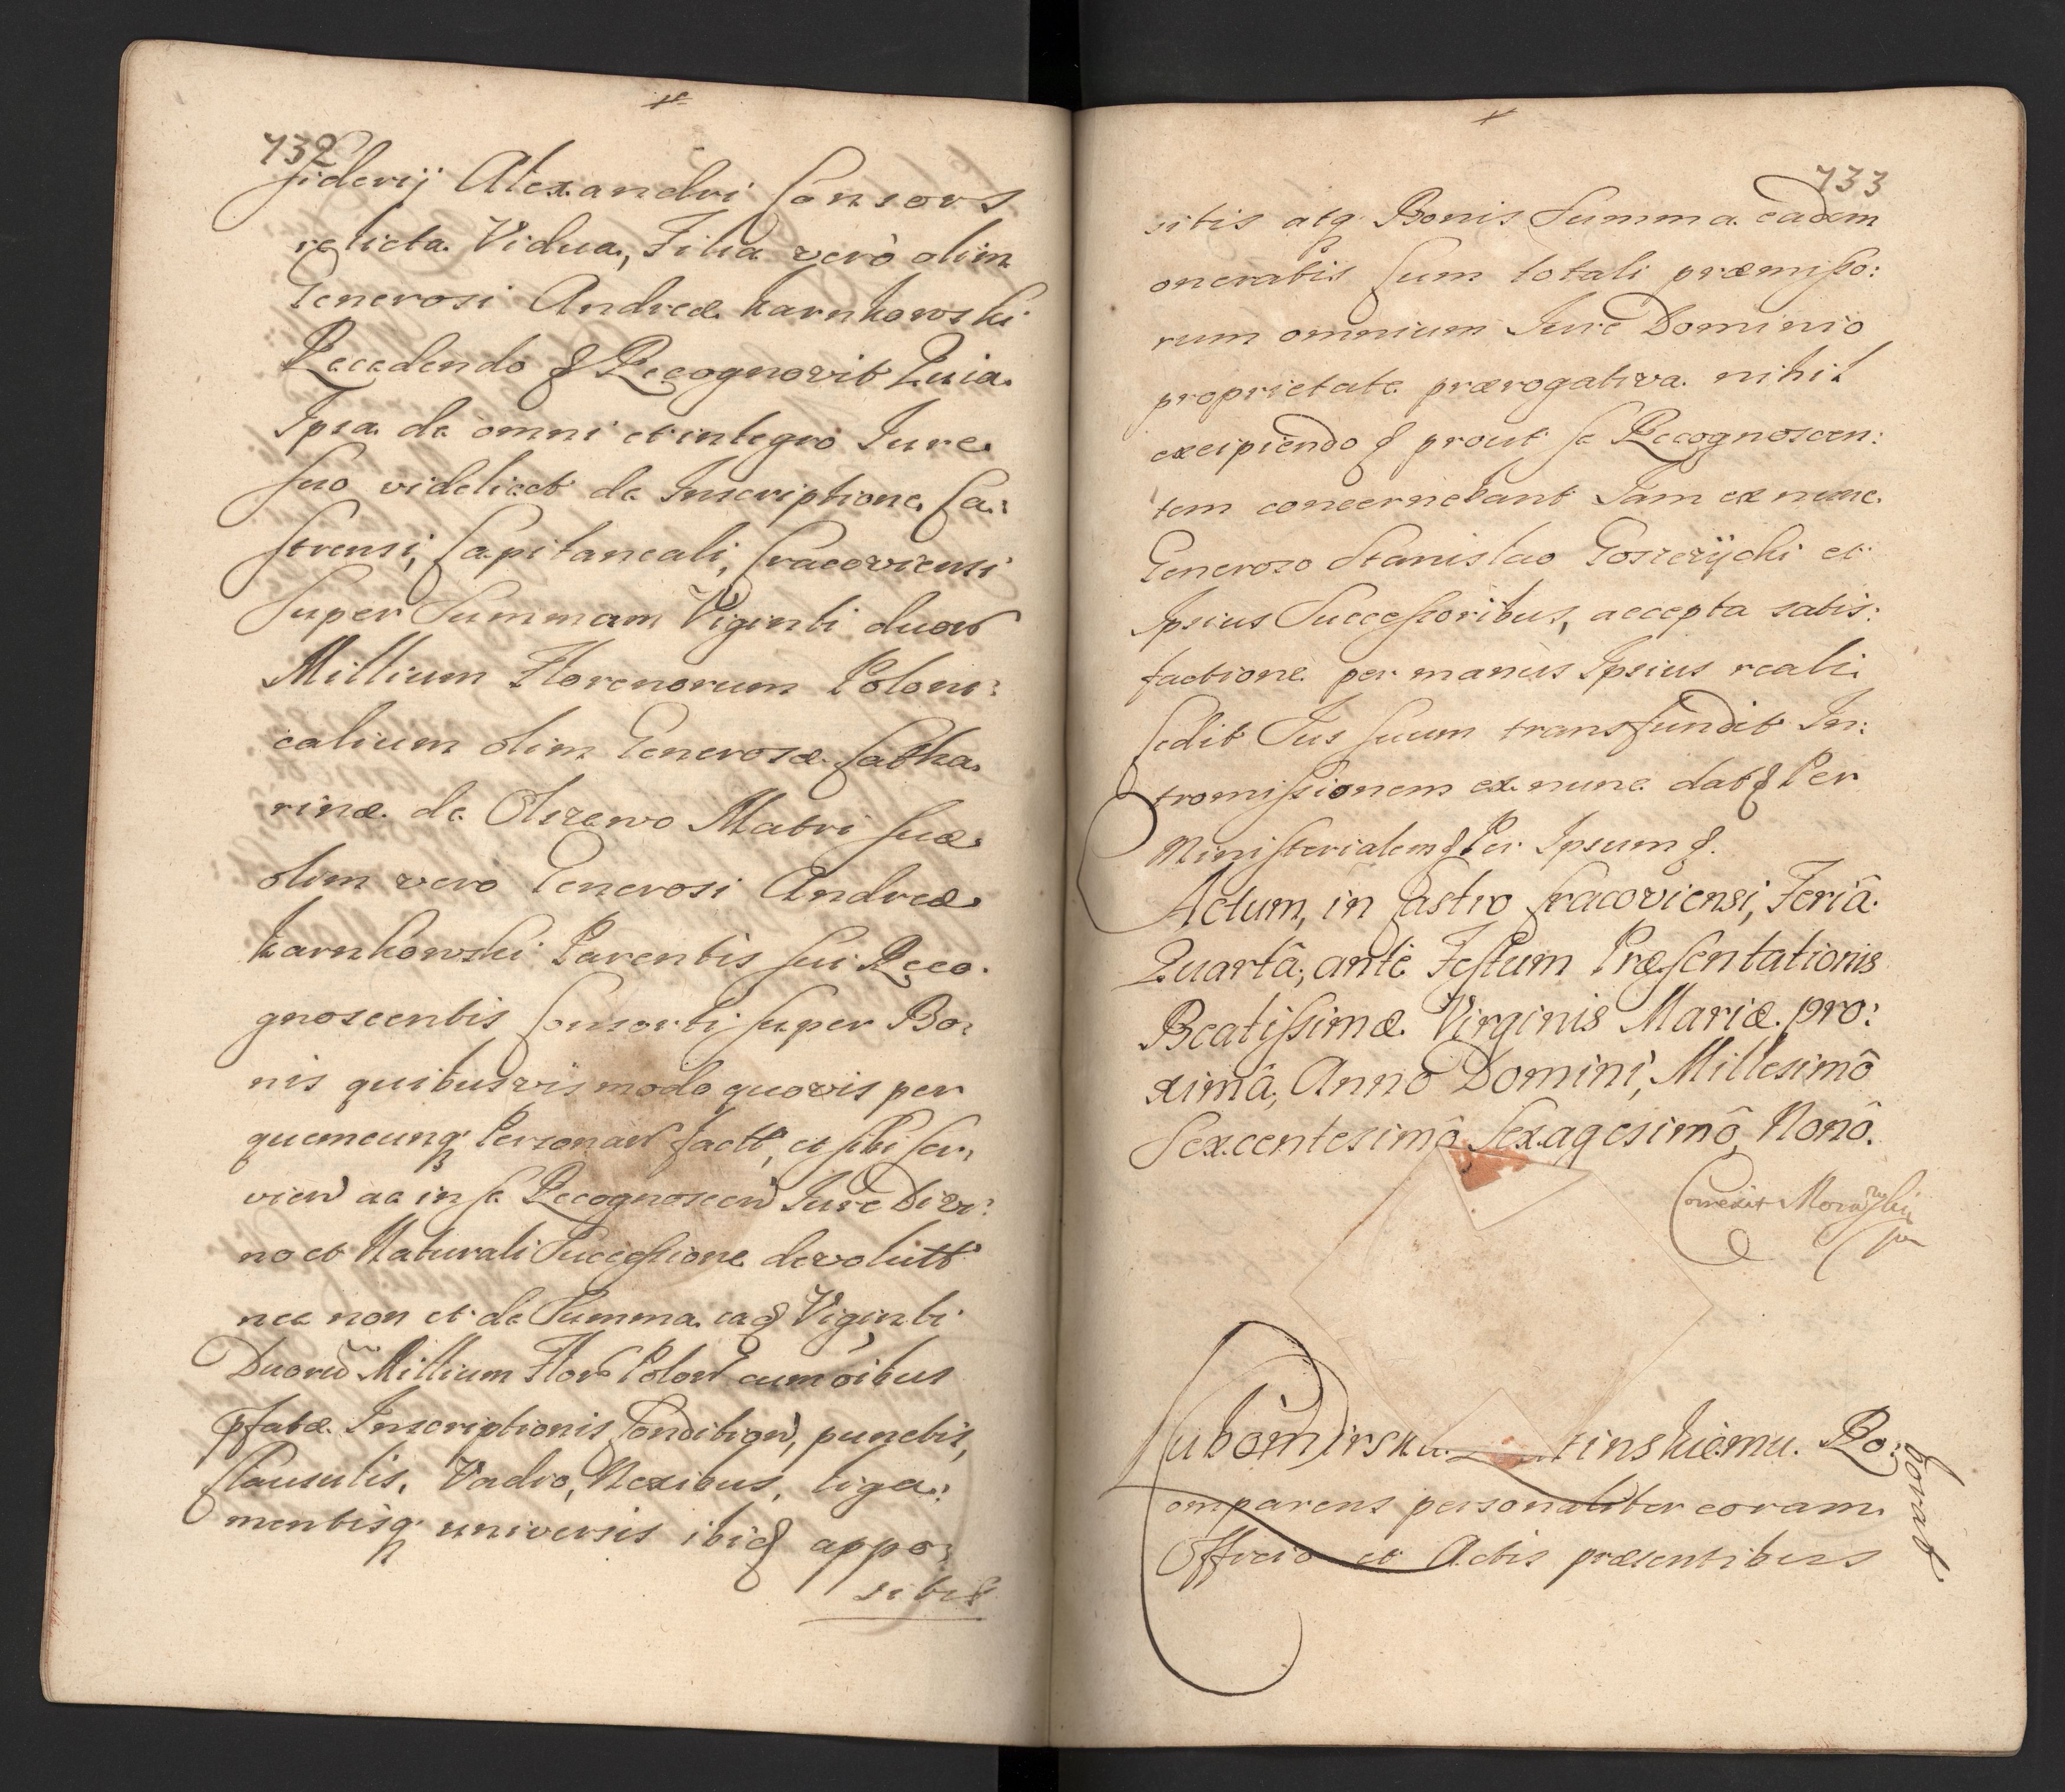 732
siderij Alexandri Consors
relicta Vidua, Filia verò olim
Generosi Andreæ Karnkowski
Recedendo & Recognovit Quia
Ipsa de omni et integro Jure
suo videlicet de Inscriptione Ca:
strensi, Capitaneali, Cracoviensi
super Summam Viginti duor
Millium Florenorum Poloni:
calium olim Generosæ Catha
rinæ de Olszewo Matri suæ
olim verò Generosi Andreæ
Karnkowski Parentis sui Reco:
gnoscentis Consorti super Bo:
nis quibusvis modo quovis per
quemcunq Personar factt, et sibi ser:
vien ac in se Recognoscen Jure Divi:
no et Naturali Successione devolutt
nec non et de Summa ead Viginti
Duorũ Millium Flor Polon cum oibus
pfatæ Inscriptionis Condition, punctis,
Clausulis, Vadio, Nexibus, liga:
mentisq universis ibid appo:
sitis
733
sitis atq Bonis Summa eadem
oneratis Cum totali præmisso:
rum omnium Jure Dominio
proprietate prærogativa nihil
excipiendo & prout se Recognoscen:
tem concernebant Iam ex nunc
Generoso Stanislao Goszczÿcki et
Ipsius Successoribus, accepta satis:
factione per manus Ipsius reali
Cedit Jus suum transfundit In:
tromissionem ex nunc dat & Per
Ministerialem & Per Ipsum &.
Actum, in Castro Cracoviensi, Feriâ
Quartâ, ante Festum Præsentationis
Beatissimæ Virginis Mariæ pro:
ximâ, Anno Domini, Millesimô
Sexcentesimô Sexagesimô Nonô.
Correxit
Lubomirsku tinskiemu. Ro:
borat
Comparens personaliter coram
Officio et Actis præsentibus